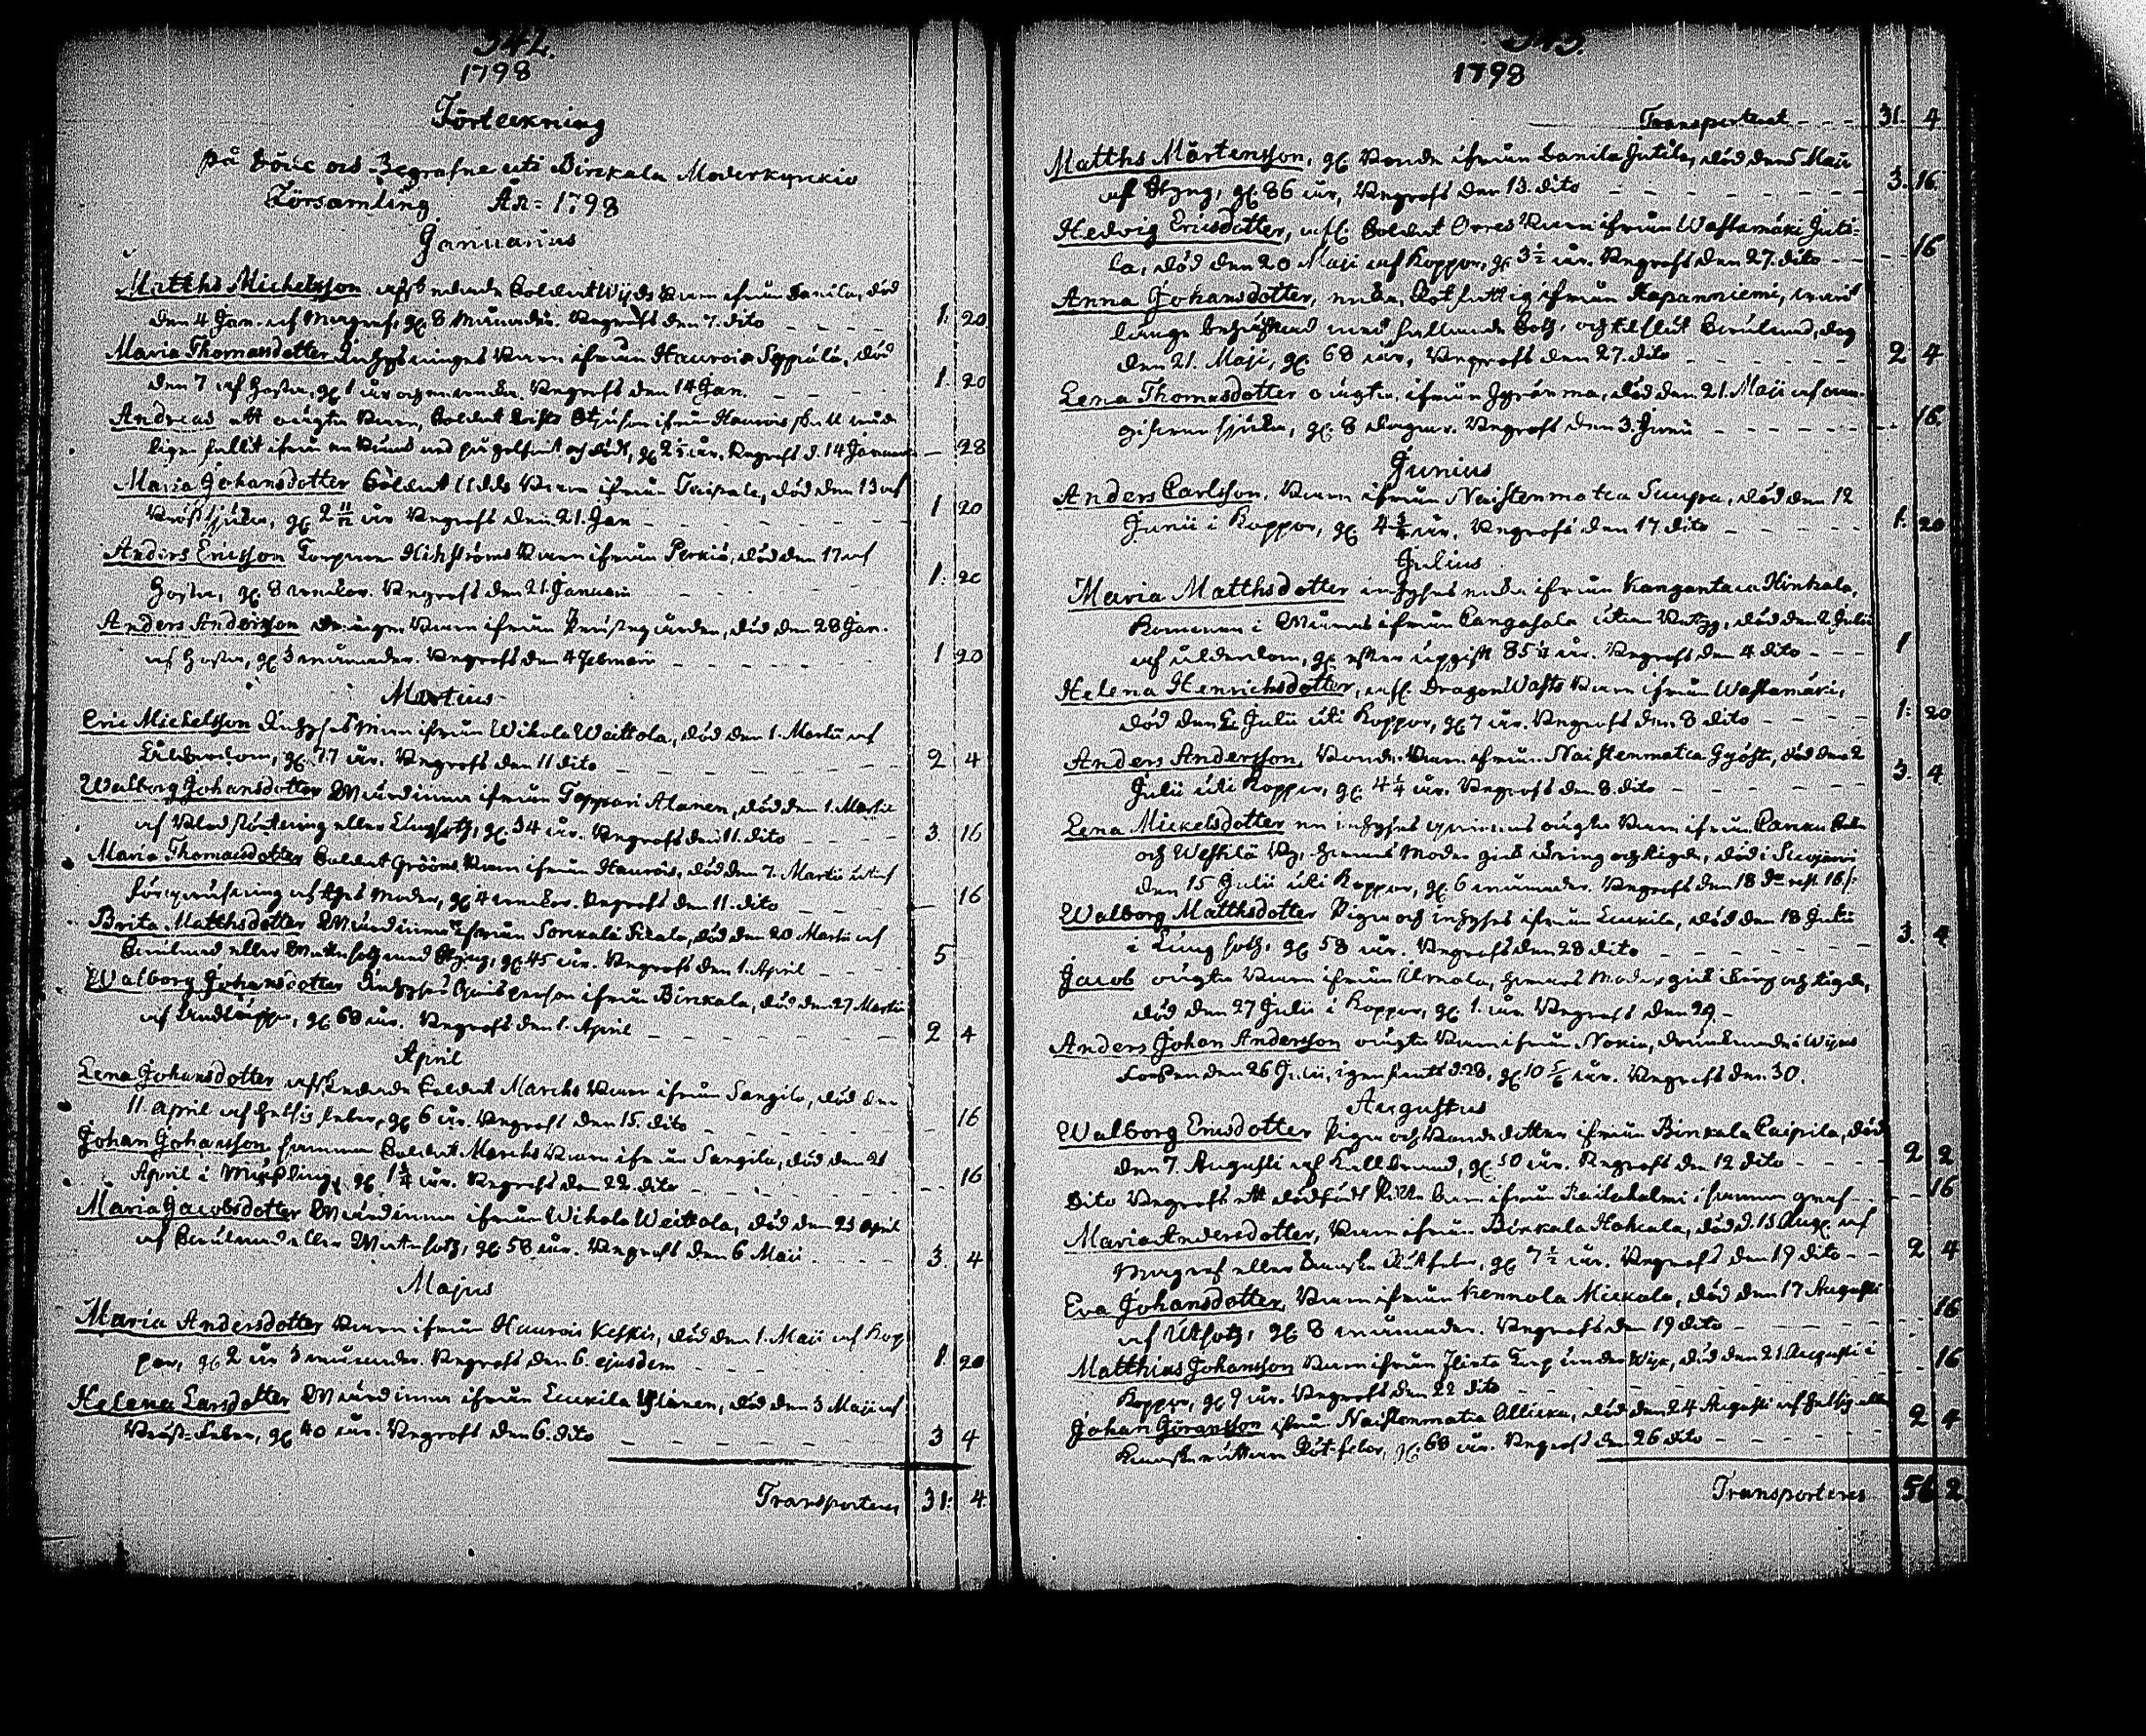 342.
1798
Förteckning
på Döde och Begrafne uti Birckala Moderkyrckio
Församling År 1798
Januarius
Matths Michelsson afskedade Soldat Wijds barn ifrån Danila, död
den 4 Jan. af Magref, gl. 8 månader. Begrofs den 7. dito 1: 20
Maria Thomasdotter Inhyses barn ifrån Haurois Sippilä, död
den 7 af hosta, gl. 1 år och en vecka. Begrofs den 14 Jan. 1. 20
Andreas ett oägta barn, Soldat ifrån Haurois
fallit ifrån en och dödt, gl. 2 1/2 år. Begrofs d. 14 Januarii — 28
Maria Johansdotter Soldat Udds barn ifrån Taipale, död den 13 af
Bröstsjuka, gl. 2 11/12 år Begrofs den 21. Jan 1 20
Anders Ericsson Torparen barn ifrån Perkiö, död den 17 af
Hosta, gl. 8 veckor. Begrofs den 21. Januarii 1: 20
Anders Andersson Drängens barn ifrån Prästegården, död den 28 Jan.
af Hosta, gl. 3 månader. Begrofs den 4 Februarii 1 20
Martius
Eric Michelsson Inhyses ifrån Wihola Weittola, död den 1. Martii af
Ålderdom, gl. 77 år. Begrofs den 11 dito 2 4
Walborg Johansdotter Wärdinna ifrån Toppari Alanen, död den 1. Martii
af Blodstörtning eller Lungsot, gl. 34 år. Begrofs den 11. dito 3. 16
Maria Thomasdotter Soldat Grööns barn ifrån Haurois, död den 7. Martii
af Moder, gl. 4 veckor. Begrofs den 11. dito — 16
Brita Matthsdotter Wärdinna ifrån Sorckala Sickala, död den 20 Martii af
eller Wattusot med Styng, gl. 45 år. Begrofs den 1. April 5
Walborg Johansdotter Inhyses Qvinsperson ifrån Birckala, död den 27 Martii
af Andtäppa, gl. 68 år. Begrofs den 1. April 2 4
April
Lena Johansdotter afskedade Soldat Marcks barn ifrån Sangila, död den
11. April af hetsig feber, gl. 6 år. Begrofs den 15. dito 16
Johan Johansson samma Soldat Marcks barn ifrån Sangila, död den 21
April i Mässling, gl. 1 3/4 år. Begrofs den 22 dito 16
Maria Jacobsdotter Wärdinna ifrån Wihola Weittola, död den 23 April
af eller Wattusot, gl. 58 år. Begrofs den 6. Maii 3. 4
Majus
Maria Andersdotter barn ifrån Haurois Keskis, död den 1. Maii af Kop
por, gl. 2 år 3 månader. Begrofs den 6. ejusdem 1 20
Helena Larsdotter Wärdinna ifrån Luckila Ylinen, död den 3 Maji af
Bröst-feber, gl. 40 år. Begrofs den 6. dito 3 4
Transporteres 31: 4
343.
1798
Transporterat 31. 4
Matths Mårtensson, gl. Bonde ifrån Danila Jutila, död den 5 Maii
af Styng, gl. 86 år, Begrofs den 13. dito 3. 16
Hedvig Ericsdotter, afsk. Soldat Orres barn ifrån Wastamäki Juti-
la, död den 20 Maji af Koppor, gl. 3 1/2 år. Begrofs den 27. dito 16
Anna Johansdotter, enka, Rotfattig ifrån Kapanniemi,
länge behäftad med fallande Sot, och til slut dog
den 21. Maji, gl. 68 år, Begrofs den 27. dito 2 4
Lena Thomasdotter oägta, ifrån Hyrönma, död den 21. Maji af
sjuka, gl. 8 dagar. Begrofs den 3. Junii 16.
Junius
Anders Carlsson, barn ifrån Naistenmatca Suupa, död den 12
Junii i Koppor, gl. 4 3/4 år. Begrofs den 17. dito 1. 20
Julius
Maria Matthsdotter inhyses enka ifrån Kangantaca Hinkala,
Kommen i ifrån Cangasala, död den 2 Julii
af ålderdom, gl. efter upgift 85 1/4 år. Begrofs den 4 dito 1
Helena Henrichsdotter, afsk. Dragon Wasts barn ifrån Wastamäki,
död den 2 Julii uti Koppor, gl. 7 år. Begrofs den 8 dito 1: 20
Anders Andersson, Bonde-barn ifrån Naistenmatca Gyösti, död den 2
Julii uti Koppor, gl. 4 1/4 år. Begrofs den 8. dito 3. 4
Lena Michelsdotter en inhyses qvinnas oägta barn ifrån
och Wesilä By, hvars Moder gick kring och tigde, död i Suojärvi
den 15 Julii uti Koppor, gl. 6 månader. Begrofs den 18 do
Walborg Matthsdotter Piga och inhyses ifrån Luckila, död den 18 Julii
i Lungsot, gl. 58 år. Begrofs den 23 dito 3. 4
Jacob oägta barn ifrån Ilmola, hvars Moder gick kring och tigde,
död den 27 Julii i Koppor, gl. 1. år. Begrofs den 29.
Anders Johan Andersson oägta barn ifrån Nokia, drunknade i
Forssen den 26 Julii, igen funnen d. 28, gl. 10 5/6 år. Begrofs den 30.
Augustus
Walborg Ericsdotter Piga och Bonddotter ifrån Birckala Caipila, död
den 7. Augusti af Kallbrand, gl. 50 år. Begrofs den 12 dito 2 2
Dito Begrofs ett dödfödt barn ifrån i samma graf 16
Maria Andersdotter, barn ifrån Birckala Hahcala, död d. 15 Aug. af
Magref eller Rötfeber, gl. 7 1/2 år. Begrofs den 19 dito 2 4
Eva Johansdotter, barn ifrån Kennola Mickola, död den 17 Augusti
af Utsot, gl. 8 månader. Begrofs den 19 dito 16
Matthias Johansson barn ifrån Torp under Wijk, död den 21. Augusti i
Koppor, gl. 9 år. Begrofs den 22 dito 16
Johan Göransson ifrån Naistenmatca Ollicka, död den 24 Augusti af hetsig eller
Rötfeber, gl. 68 år. Begrofs den 26 dito 2 4
Transporteres 56 2